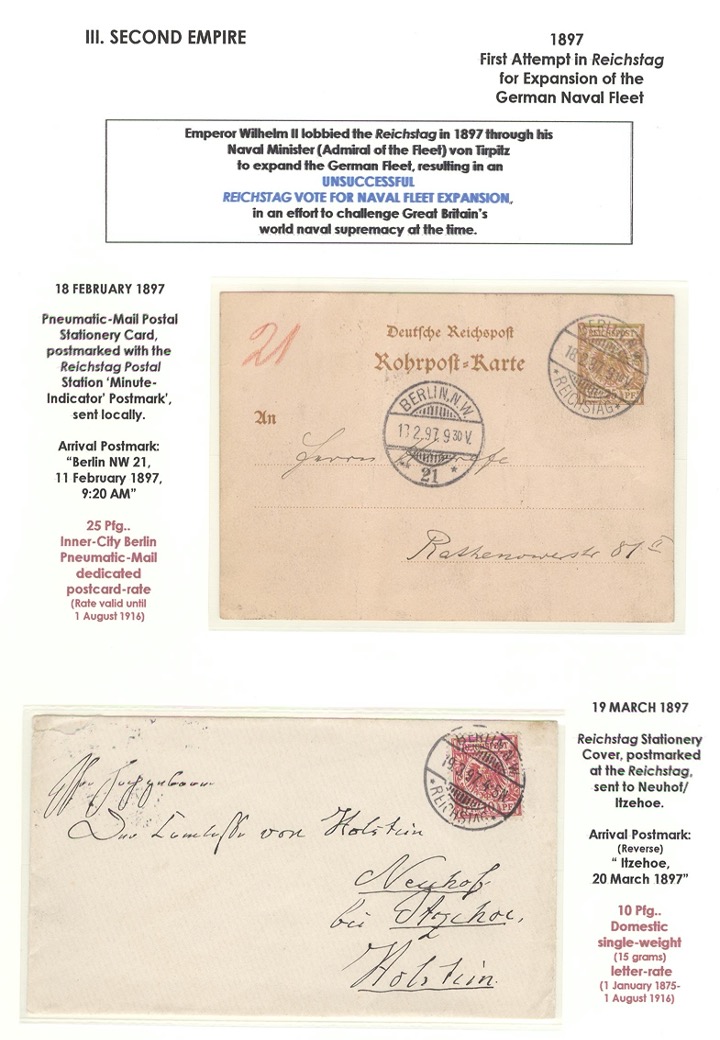 III. SECOND EMPIRE
1897
First Attempt in Reichstag
for Expansion of the
German Naval Fleet
Emperor Wilhelm II lobbied the Reichstag in 1897 through his
Naval Minister (Admiral of the Fleet) von Tirpitz
to expand the German Fleet, resulting in an
UNSUCCESSFUL
REICHSTAG VOTE FOR NAVAL FLEET EXPANSION,
in an effort to challenge Great Britain's
world naval supremacy at the time.
18 FEBRUARY 1897
Pneumatic-Mail Postal
Stationery Card,
postmarked with the
Reichstag Postal
Station 'Minute-
Indicator' Postmark',
sent locally.
Arrival Postmark:
"Berlin NW 21,
11 February 1897,
9:20 AM"
25 Pfg..
Inner-City Berlin
Pneumatic-Mail
dedicated
postcard-rate
(Rate valid until
1 August 1916)
21
Deutsche Reichspost
Rohrpost-Karte
An
BERLIN, N.W.
REICHSTAG
BERLIN, N.W.
2.97. 9 30 V.
* 21 *
Herrn
Rathenowerstr 81 II
19 MARCH 1897
Reichstag Stationery
Cover, postmarked
at the Reichstag,
sent to Neuhof/
Itzehoe.
Arrival Postmark:
(Reverse)
" Itzehoe,
20 March 1897"
10 Pfg..
Domestic
single-weight
(15 grams)
letter-rate
(1 January 1875-
1 August 1916)
BERLIN, N.W.
REICHSTAG
von Holstein
Neuhof
bei Itzehoe,
Holstein.